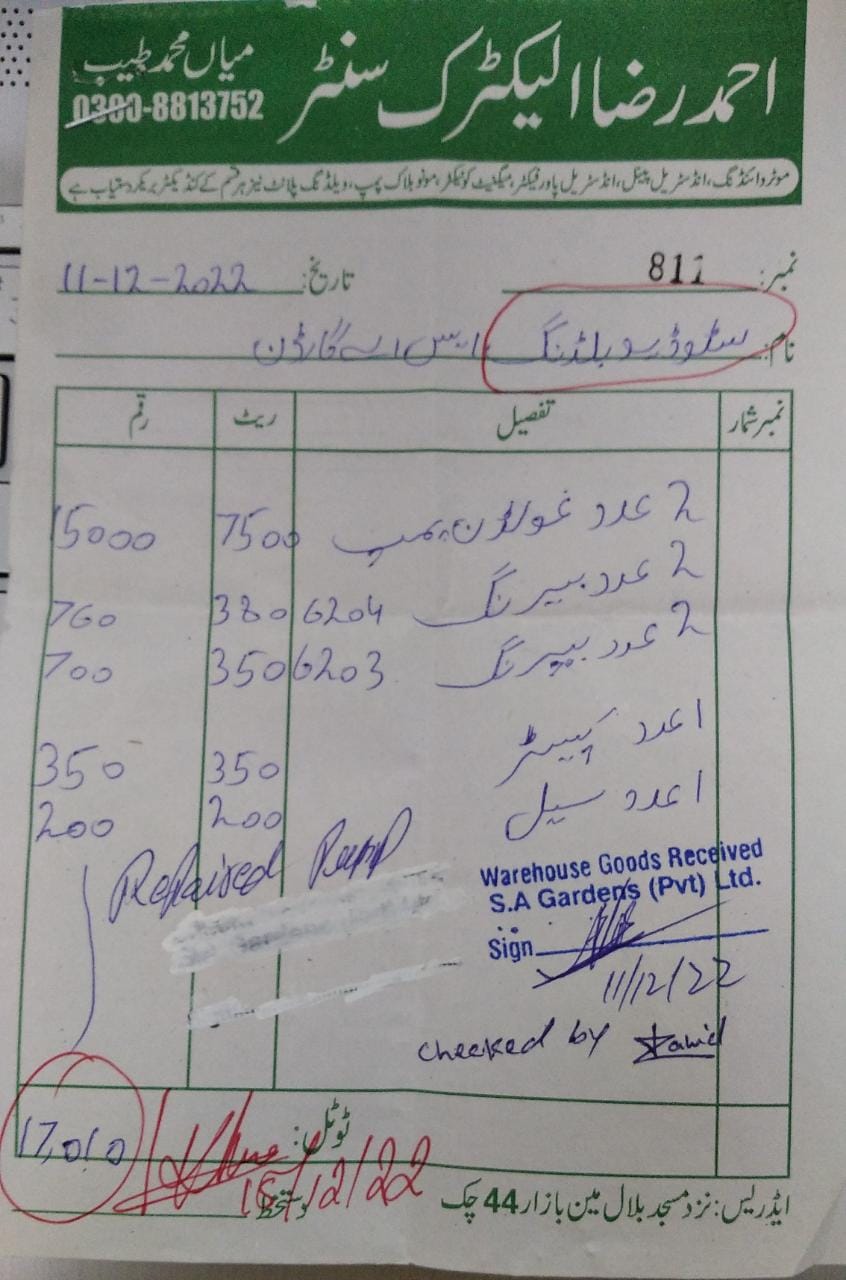 احمد رضا الیکٹرک سنٹر
میاں محمد طیب
0300-8813752
موٹر وائنڈنگ، انڈسٹریل پینل، انڈسٹریل پاور فیکٹر، میگنیٹ کونیکٹر، مونو بلاک پمپ، ویلڈنگ پلانٹ نیز ہر قسم کے کنڈیکٹر بریکر دستیاب ہے
نمبر: 811 تاریخ: 11-12-2022
نام: سٹوڈیو بلڈنگ ایس اے گارڈن
نمبر شمار تفصیل ریٹ رقم
2 عدد پمپ 7500 15000
2 عدد بیرنگ 6204 380 760
2 عدد بیرنگ 6203 350 700
1 عدد 350 350
1 عدد سیل 200 200
Repaired Pump
Warehouse Goods Received
S.A Gardens (Pvt) Ltd.
Sign
11/12/22
checked by
ٹوٹل: 17,010
دستخط 15/12/22
ایڈریس: نزد مسجد بلال مین بازار 44 چک